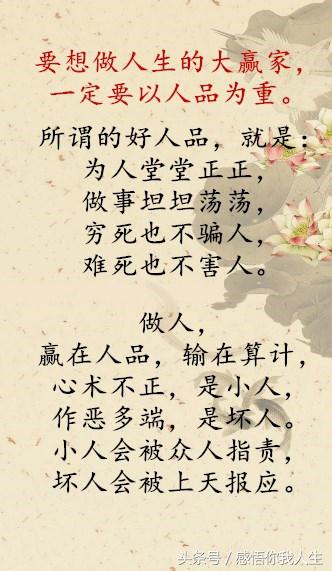 要想做人生的大赢家，
一定要以人品为重。
所谓的好人品，就是：
为人堂堂正正，
做事坦坦荡荡，
穷死也不骗人，
难死也不害人。
做人，
赢在人品，输在算计，
心术不正，是小人，
作恶多端，是坏人。
小人会被众人指责，
坏人会被上天报应。
头条号/感悟你我人生